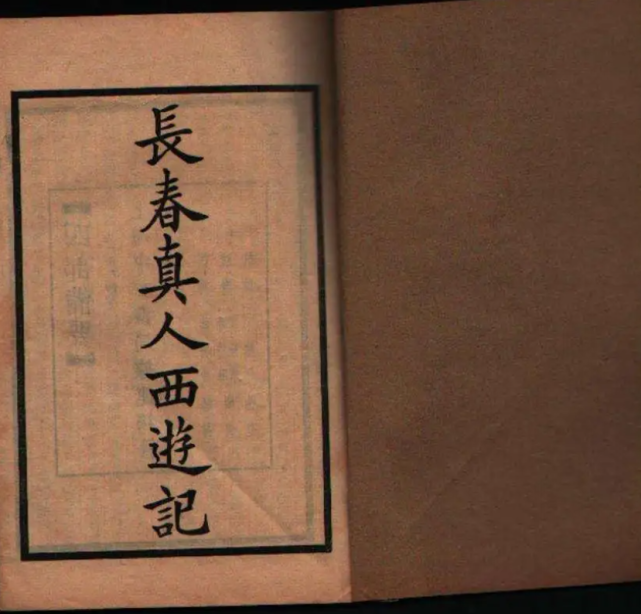 長春真人西遊記